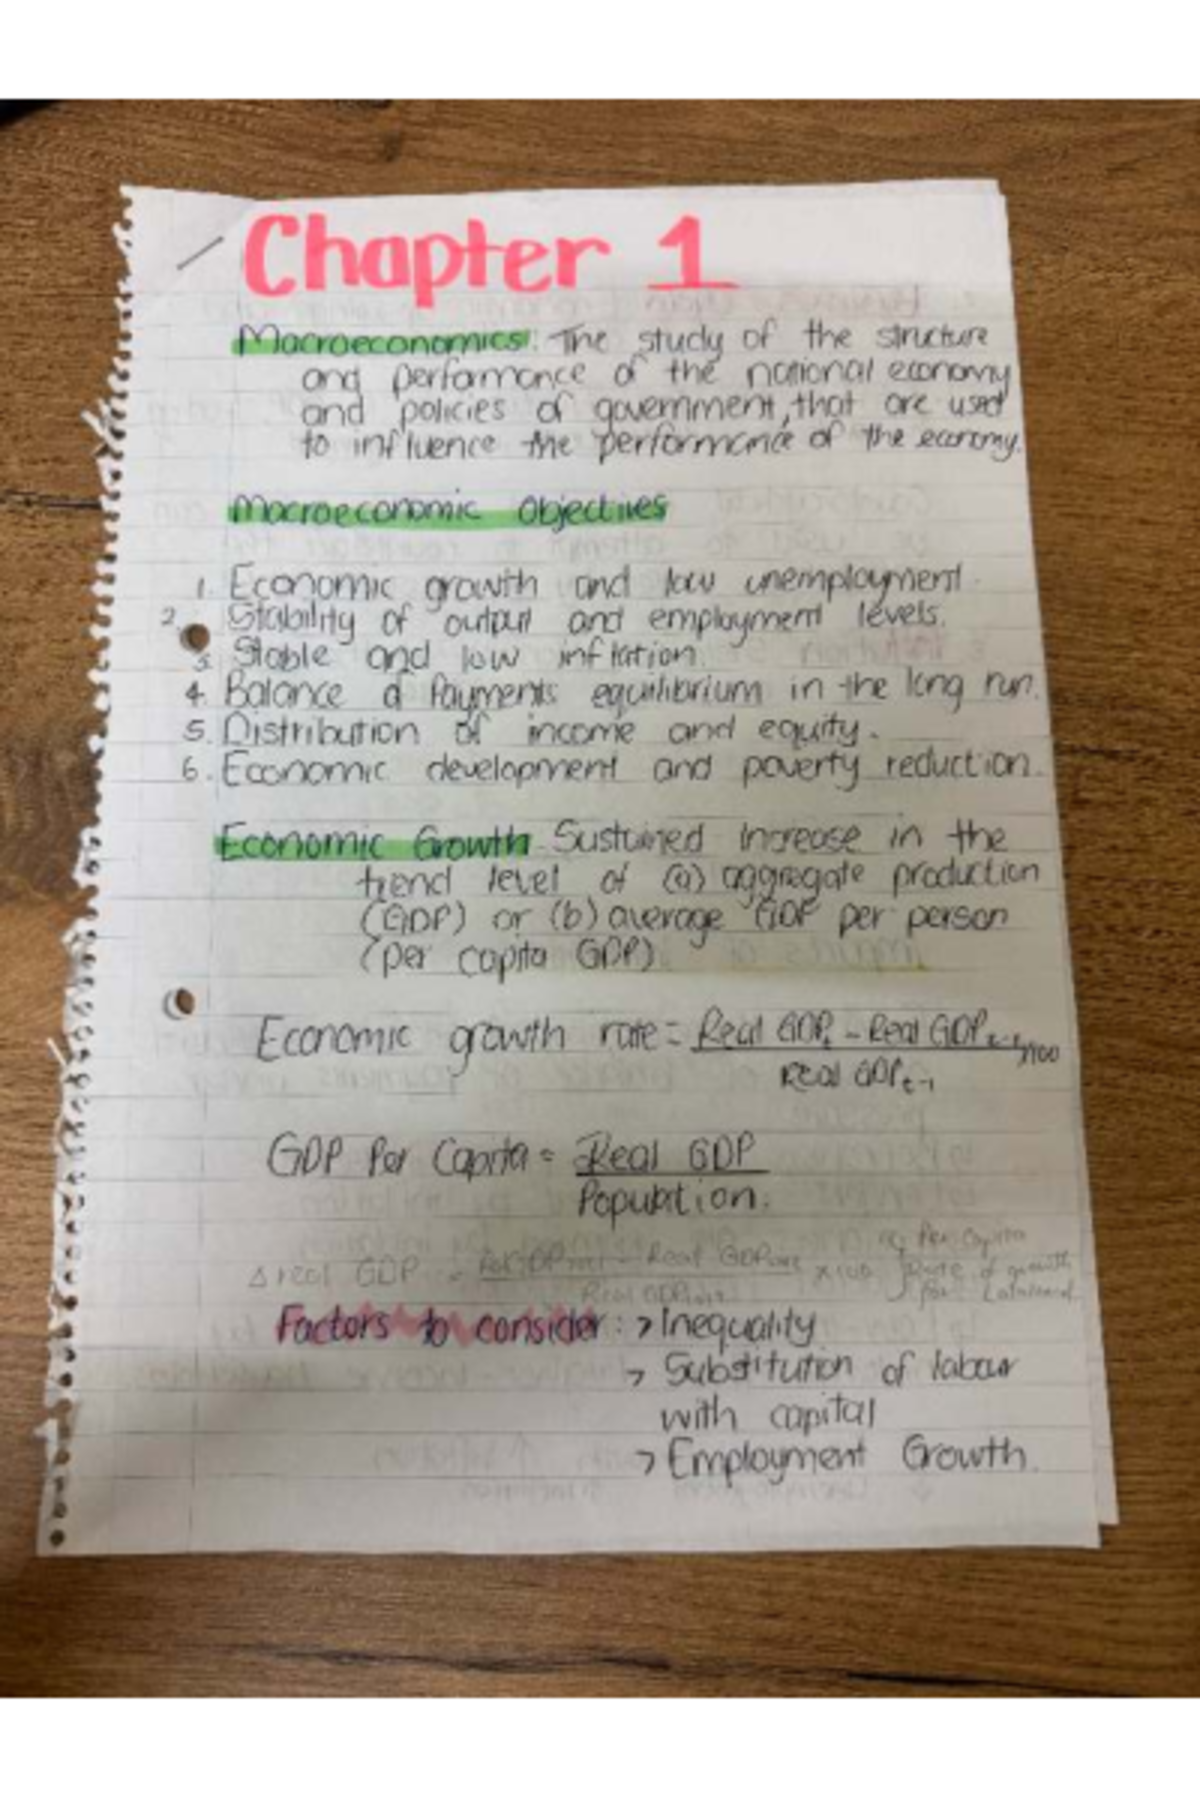 Chapter 1
Macroeconomics: The study of the structure
and performance of the national economy
and policies of government, that are used
to influence the performance of the economy.
Macroeconomic Objectives
1. Economic growth and low unemployment.
2. Stability of output and employment levels.
3. Stable and low inflation.
4. Balance of Payments equilibrium in the long run.
5. Distribution of income and equity.
6. Economic development and poverty reduction.
Economic Growth Sustained increase in the
trend level of (a) aggregate production
(GDP) or (b) average GDP per person
(per capita GDP)
Economic growth rate = Real GDPt - Real GDPt-1 x100
Real GDPt-1
GDP Per Capita = Real GDP
Population.
Per Capita
Δ real GDP = - Real GDP x100 Rate of growth
Real GDP for
Factors to consider: > Inequality
> Substitution of labour
with capital
> Employment Growth.